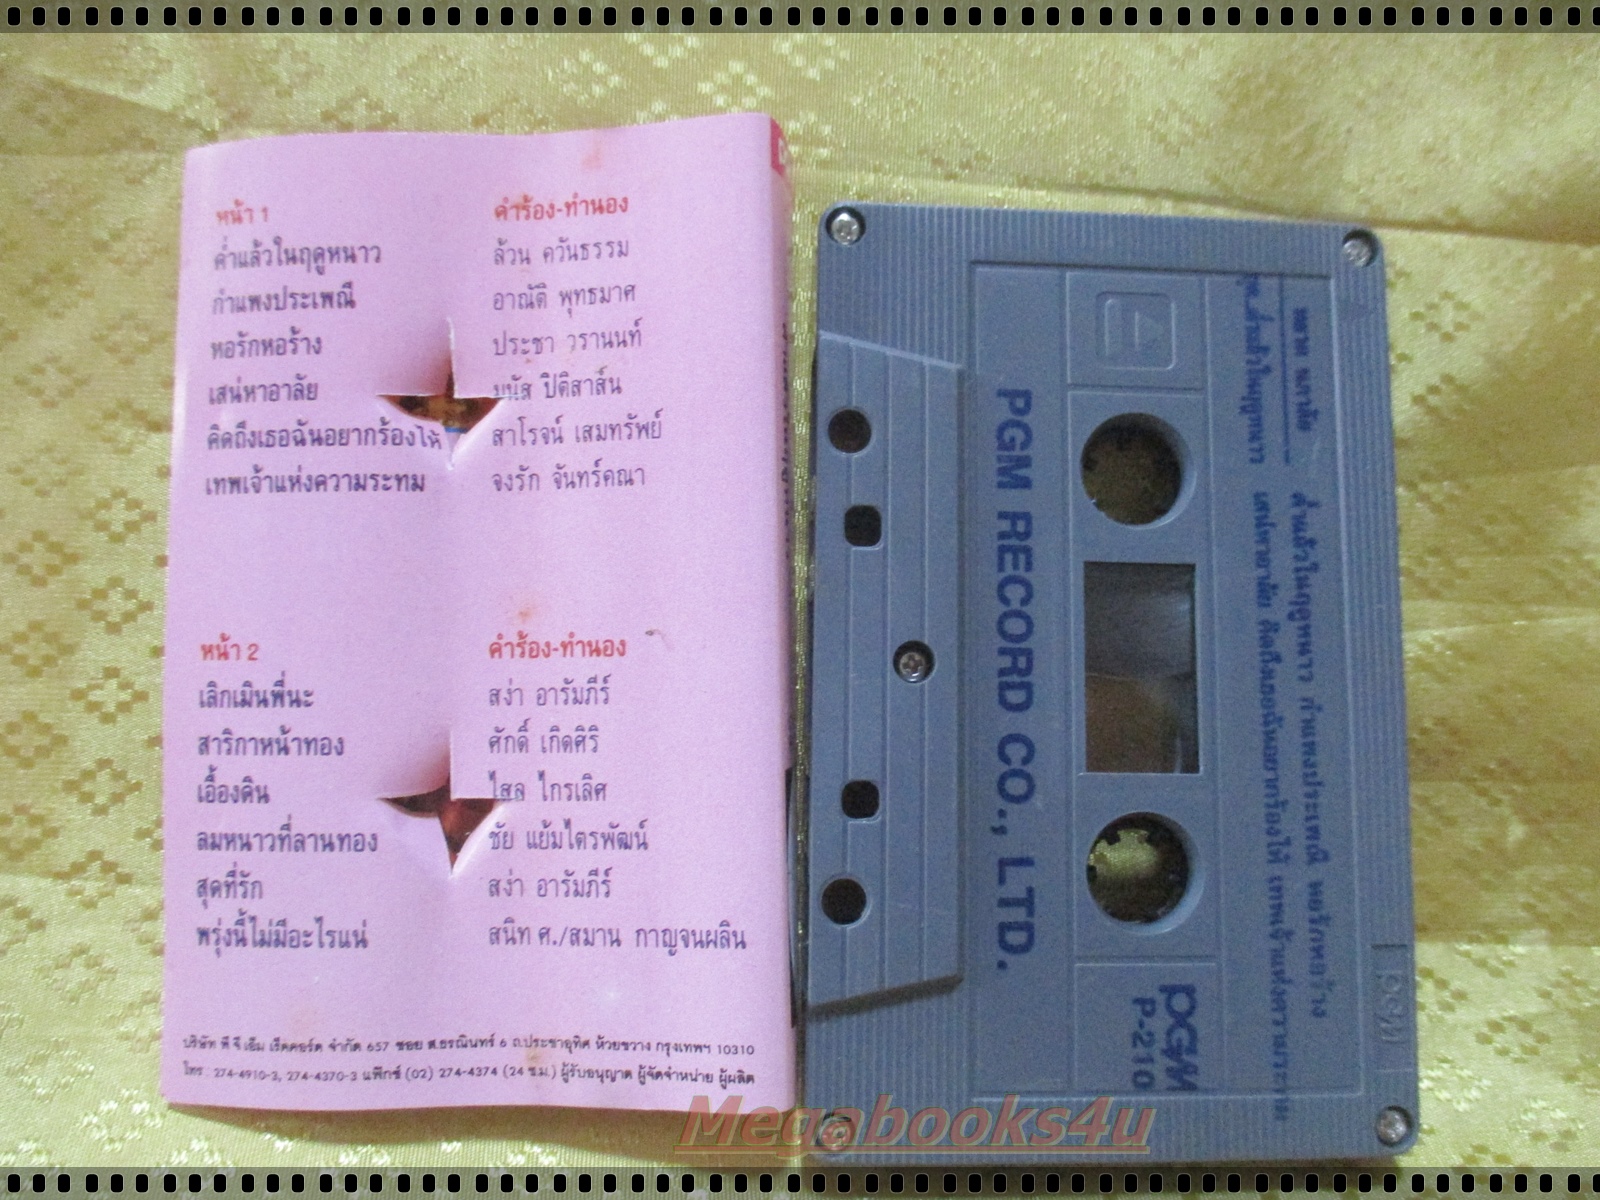 หน้า 1 คำร้อง-ทำนอง
ค่ำแล้วในฤดูหนาว ล้วน ควันธรรม
กำแพงประเพณี อาณัติ พุทธมาศ
หอรักหอร้าง ประชา วรานนท์
เสน่หาอาลัย มนัส ปิติสาส์น
คิดถึงเธอฉันอยากร้องไห้ สาโรจน์ เสมทรัพย์
เทพเจ้าแห่งความระทม จงรัก จันทร์คณา
หน้า 2 คำร้อง-ทำนอง
เลิกเมินพี่นะ สง่า อารัมภีร์
สาริกาหน้าทอง ศักดิ์ เกิดศิริ
เอื้องดิน ไสล ไกรเลิศ
ลมหนาวที่ลานทอง ชัย แย้มไตรพัฒน์
สุดที่รัก สง่า อารัมภีร์
พรุ่งนี้ไม่มีอะไรแน่ สนิท ศ./สมาน กาญจนผลิน
บริษัท พี จี เอ็ม เร็คคอร์ด จำกัด 657 ซอย ส.ธรณินทร์ 6 ถ.ประชาอุทิศ ห้วยขวาง กรุงเทพฯ 10310
โทร. 274-4910-3, 274-4370-3 แฟ๊กซ์ (02) 274-4374 (24 ช.ม.) ผู้รับอนุญาต ผู้จัดจำหน่าย ผู้ผลิต
ค่ำแล้วในฤดูหนาว กำแพงประเพณี หอรักหอร้าง
ค่ำแล้วในฤดูหนาว เสน่หาอาลัย คิดถึงเธอฉันอยากร้องไห้ เทพเจ้าแห่งความระทม
pgm
P-210
PGM RECORD CO., LTD.
pgm
Megabooks4u